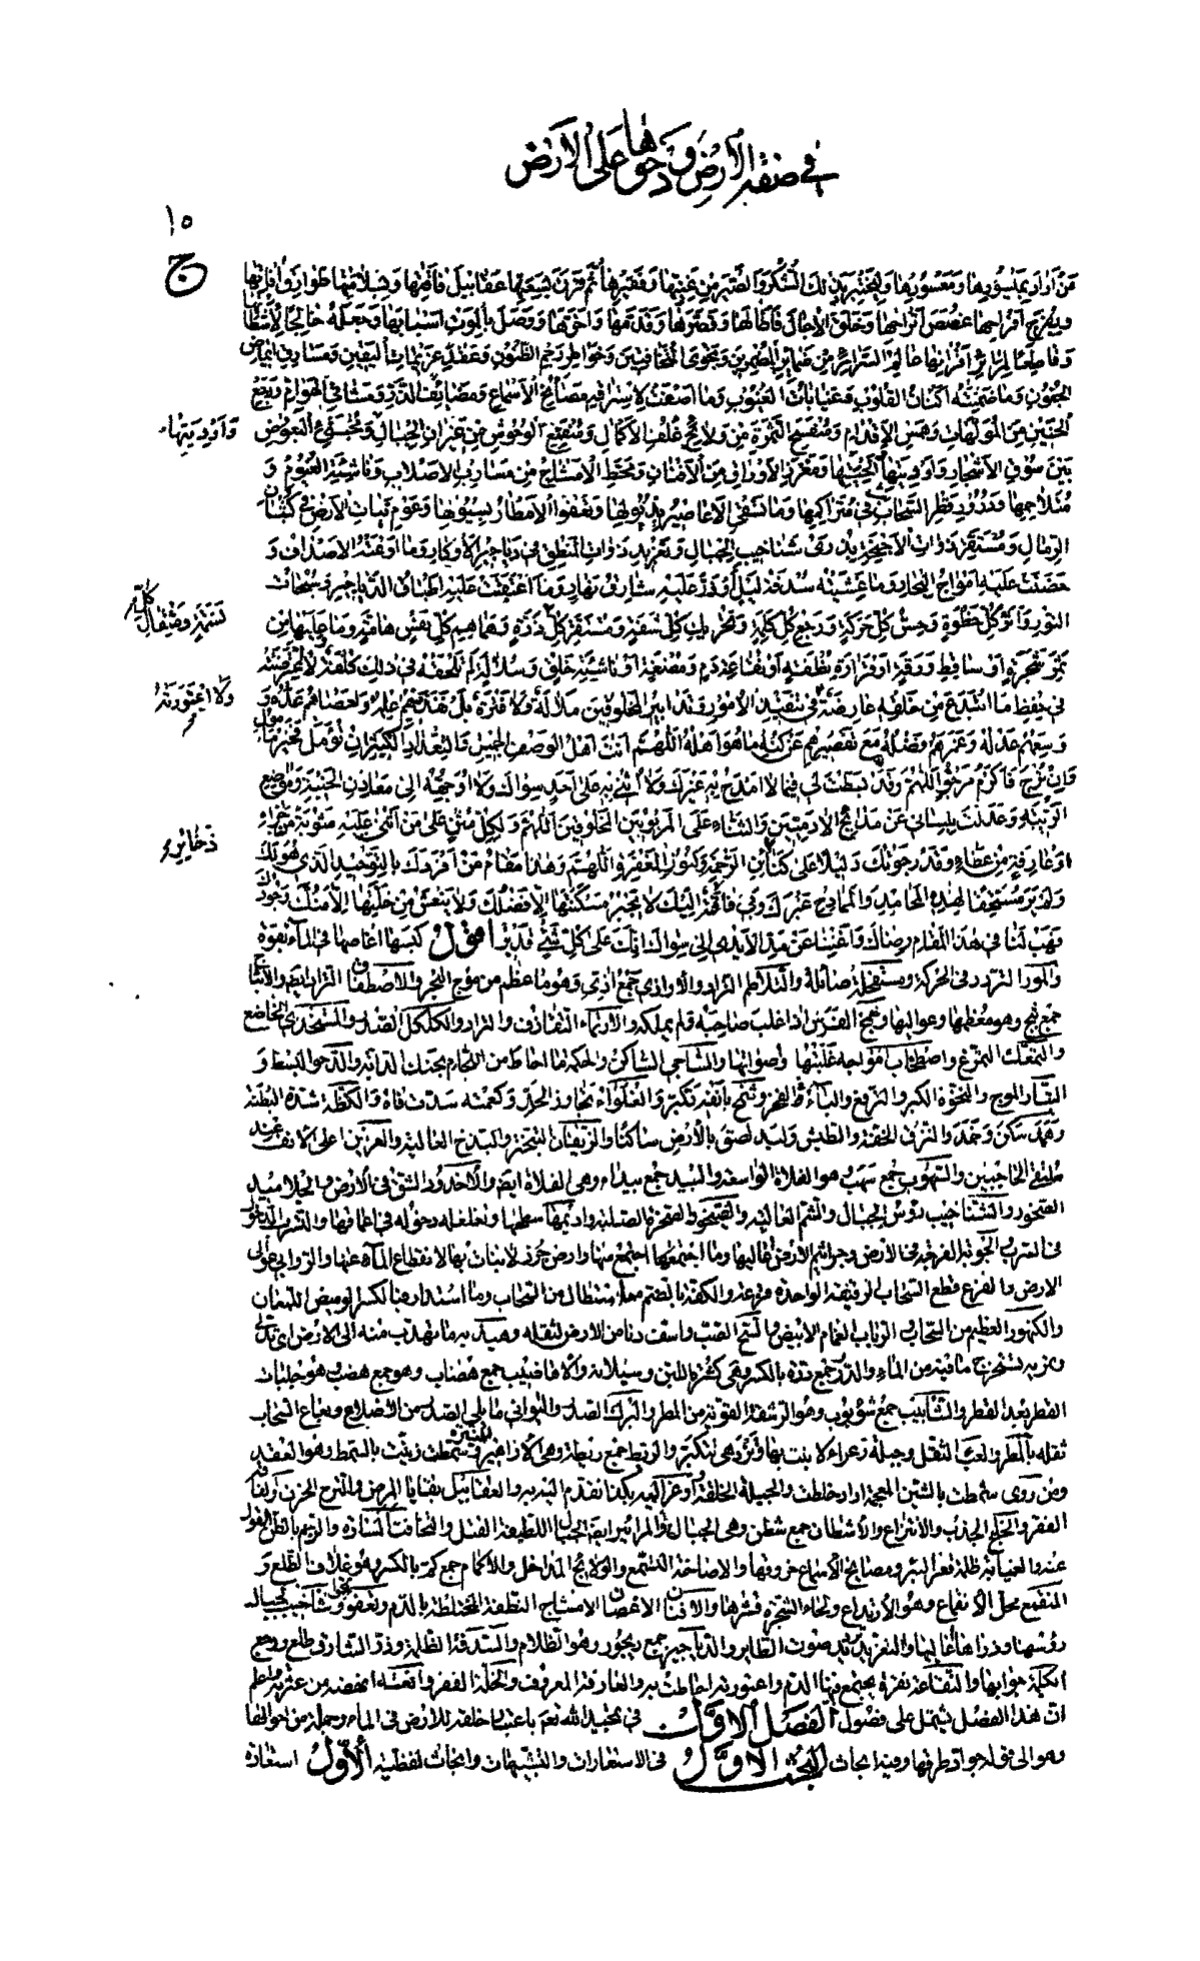 في صفة الأرض ودحوها على الأرض
١٥
ج
مَنْ أَرَادَ بِمَيْسُورِهَا وَمَعْسُورِهَا وَلِيَخْتَبِرَ بِذٰلِكَ الشُّكْرَ وَالصَّبْرَ مِنْ غَنِيِّهَا وَفَقِيرِهَا ثُمَّ قَرَنَ بِسَعَتِهَا عَقَابِيلَ فَاقَتِهَا وَبِسَلَامَتِهَا طَوَارِقَ آفَاتِهَا
وَبِفُرَجِ أَفْرَاحِهَا غُصَصَ أَتْرَاحِهَا وَخَلَقَ الْآجَالَ فَأَطَالَهَا وَقَصَّرَهَا وَقَدَّمَهَا وَأَخَّرَهَا وَوَصَلَ بِالْمَوْتِ أَسْبَابَهَا وَجَعَلَهُ خَالِجًا لِأَشْطَانِهَا
وَقَاطِعًا لِمَرَائِرِ أَقْرَانِهَا عَالِمُ السِّرِّ مِنْ ضَمَائِرِ الْمُضْمِرِينَ وَنَجْوَى الْمُتَخَافِتِينَ وَخَوَاطِرِ رَجْمِ الظُّنُونِ وَعُقَدِ عَزِيمَاتِ الْيَقِينِ وَمَسَارِقِ إِيمَاضِ
الْجُفُونِ وَمَا ضَمِنَتْهُ أَكْنَانُ الْقُلُوبِ وَغَيَابَاتُ الْغُيُوبِ وَمَا أَصْغَتْ لِاسْتِرَاقِهِ مَصَائِخُ الْأَسْمَاعِ وَمَصَائِفِ الذَّرِّ وَمَشَاتِي الْهَوَامِّ وَرَجْعِ
الْحَنِينِ مِنَ الْمُولَهَاتِ وَهَمْسِ الْأَقْدَامِ وَمُنْفَسَحِ الثَّمَرَةِ مِنْ وَلَائِجِ غُلُفِ الْأَكْمَامِ وَمُنْقَمَعِ الْوُحُوشِ مِنْ غِيرَانِ الْجِبَالِ وَمُخْتَبَئِ الْبَعُوضِ
وَأَوْدِيَتِهَا
بَيْنَ سُوقِ الْأَشْجَارِ وَأَلْحِيَتِهَا وَمَغْرَزِ الْأَوْرَاقِ مِنَ الْأَفْنَانِ وَمَحَطِّ الْأَمْشَاجِ مِنْ مَسَارِبِ الْأَصْلَابِ وَنَاشِئَةِ الْغُيُومِ وَ
مُتَلَاحِمِهَا وَدُرُورِ قَطْرِ السَّحَابِ فِي مُتَرَاكِمِهَا وَمَا تَسْفِي الْأَعَاصِيرُ بِذُيُولِهَا وَتَعْفُو الْأَمْطَارُ بِسُيُولِهَا وَعَوْمِ نَبَاتِ الْأَرْضِ فِي كُثْبَانِ
الرِّمَالِ وَمُسْتَقَرِّ ذَوَاتِ الْأَجْنِحَةِ بِذُرَى شَنَاخِيبِ الْجِبَالِ وَتَغْرِيدِ ذَوَاتِ الْمَنْطِقِ فِي دَيَاجِيرِ الْأَوْكَارِ وَمَا أَوْعَتْهُ الْأَصْدَافُ وَ
حَضَنَتْ عَلَيْهِ أَمْوَاجُ الْبِحَارِ وَمَا غَشِيَتْهُ سُدْفَةُ لَيْلٍ أَوْ ذَرَّ عَلَيْهِ شَارِقُ نَهَارٍ وَمَا اعْتَقَبَتْ عَلَيْهِ أَطْبَاقُ الدَّيَاجِيرِ وَسُبُحَاتُ
النُّورِ وَأَثَرِ كُلِّ خَطْوَةٍ وَحِسِّ كُلِّ حَرَكَةٍ وَرَجْعِ كُلِّ كَلِمَةٍ وَتَحْرِيكِ كُلِّ شَفَةٍ وَمُسْتَقَرِّ كُلِّ ذَرَّةٍ وَهَمَاهِمِ كُلِّ نَفْسٍ هَامَّةٍ وَمَا عَلَيْهَا مِنْ
نَسَمَةٍ وَمِثْقَالِ كُلِّ
ثَمَرِ شَجَرَةٍ أَوْ سَاقِطِ وَرَقَةٍ أَوْ قَرَارَةِ نُطْفَةٍ أَوْ نُقَاعَةِ دَمٍ وَمُضْغَةٍ أَوْ نَاشِئَةِ خَلْقٍ وَسُلَالَةٍ لَمْ تَلْحَقْهُ فِي ذٰلِكَ كُلْفَةٌ وَلَا اعْتَرَضَتْهُ
فِي حِفْظِ مَا ابْتَدَعَ مِنْ خَلْقِهِ عَارِضَةٌ فِي تَنْفِيذِ الْأُمُورِ وَتَدَابِيرِ الْمَخْلُوقِينَ مَلَالَةٌ وَلَا فَتْرَةٌ بَلْ نَفَذَ فِيهِمْ عِلْمُهُ وَأَحْصَاهُمْ عَدُّهُ وَ
وَلَا اعْتَوَرَتْهُ
وَسِعَهُمْ عَدْلُهُ وَغَمَرَهُمْ فَضْلُهُ مَعَ تَقْصِيرِهِمْ عَنْ كُنْهِ مَا هُوَ أَهْلُهُ اللّٰهُمَّ أَنْتَ أَهْلُ الْوَصْفِ الْجَمِيلِ وَالتَّعْدَادِ الْكَثِيرِ إِنْ تُؤَمَّلْ فَخَيْرُ مَأْمُولٍ
وَإِنْ تُرْجَ فَأَكْرَمُ مَرْجُوٍّ اللّٰهُمَّ وَقَدْ بَسَطْتَ لِي فِيمَا لَا أَمْدَحُ بِهِ غَيْرَكَ وَلَا أُثْنِي بِهِ عَلَى أَحَدٍ سِوَاكَ وَلَا أُوَجِّهُهُ إِلَى مَعَادِنِ الْخَيْبَةِ وَمَوَاضِعِ
الرِّيبَةِ وَعَدَلْتَ بِلِسَانِي عَنْ مَدَائِحِ الْآدَمِيِّينَ وَالثَّنَاءِ عَلَى الْمَرْبُوبِينَ الْمَخْلُوقِينَ اللّٰهُمَّ وَلِكُلِّ مُثْنٍ عَلَى مَنْ أَثْنَى عَلَيْهِ مَثُوبَةٌ مِنْ جَزَاءٍ
أَوْ عَارِفَةٌ مِنْ عَطَاءٍ وَقَدْ رَجَوْتُكَ دَلِيلًا عَلَى ذَخَائِرِ الرَّحْمَةِ وَكُنُوزِ الْمَغْفِرَةِ اللّٰهُمَّ وَهٰذَا مَقَامُ مَنْ أَفْرَدَكَ بِالتَّوْحِيدِ الَّذِي هُوَ لَكَ
ذَخَائِرِ
وَلَمْ يَرَ مُسْتَحِقًّا لِهٰذِهِ الْمَحَامِدِ وَالْمَمَادِحِ غَيْرَكَ وَبِي فَاقَةٌ إِلَيْكَ لَا يَجْبُرُ مَسْكَنَتَهَا إِلَّا فَضْلُكَ وَلَا يَنْعَشُ مِنْ خَلَّتِهَا إِلَّا مَنُّكَ وَجُودُكَ
فَهَبْ لَنَا فِي هٰذَا الْمَقَامِ رِضَاكَ وَأَغْنِنَا عَنْ مَدِّ الْأَيْدِي إِلَى سِوَاكَ إِنَّكَ عَلَى كُلِّ شَيْءٍ قَدِيرٌ أقول كبسها أغاصها في الماء بقوة
والمور التردد في الحركة ومستفحلة صائلة والتلاطم التراد والأواذي جمع آذي وهو ما عظم من موج البحر والاصطفاق الترادّ أيضا والأثباج
جمع ثبج وهو معظمها وعواليها وجمح الفرس إذا غلب صاحبه فلم يملكه والارتماء التقاذف والتراد والكلكل الصدر والمستخذي الخاضع
والتمعّك التمرّغ واصطخاب أمواجه غلبتها وأصواتها والساجي الساكن والحكمة ما أحاط من اللجام بحنك الدابة والدحو البسط و
التيار الموج والنخوة الكبر والترفع والبأو الفخر وشمخ بأنفه تكبّر والغلواء تجاوز الحدّ وكعمته سددت فاه والكظّة شدة البطنة
وهمد سكن وخمد والنزق الخفة والطيش ولبد لصق بالأرض ساكنا والزيفان التبختر والبذّخ العالية والعرنين أعلى الأنف عند
ملتقى الحاجبين والسهوب جمع سهب وهو الفلاة الواسعة والبيد جمع بيداء وهي الفلاة أيضا والأخدود الشق في الأرض والجلاميد
الصخور والشناخيب رؤس الجبال والشمّ العالية والصيخود الصخرة الصلبة وأديمها سطحها وتغلغله دخوله في أعماقها والتسرب الدخول
في السرب والجوبة الفرجة في الأرض وجراثيم الأرض أعاليها وما اجتمع منها وأرض جرز لا نبات بها لانقطاع الماء عنها والروابي عوالي
الأرض والقزع قطع السحاب الرقيقة الواحدة قزعة والكفة بالضم ما استطال من السحاب وما استدار بالكسر الوميض اللمعان
والكنهور العظيم من السحاب والرباب الغمام الأبيض والسحّ الصبّ وأسف دنا من الأرض لثقله وهيدبه ما تهدّب منه إلى الأرض أي تدلى
ومريه تستخرج ما فيه من الماء والدرر جمع درّة بالكسر وهي كثرة اللبن وسيلانه والأهاضيب جمع هضاب وهو جمع هضب وهو حلبات
القطر بعد القطر والشآبيب جمع شؤبوب وهو الرشقة القوية من المطر والبرك الصدر والبواني ما يلي الصدر من الأضلاع وبعاع السحاب
ثقله بالمطر والعبء الثقل وجبلة زعراء لا نبت بها وتزدهي تتكبّر والريط جمع ريطة وهي الأزاهير المنيرة وسمطت زيّنت بالسمط وهو العقد
ومن روى شمطت بالشين المعجمة أراد خلطت والجبلّة الخلقة وأوعز إليه بكذا تقدّم إليه به والعقابيل بقايا المرض والترح الحزن والفاقة
الفقر والخلج الجذب والانتزاع والأشطان جمع شطن وهي الحبال والمرائر أيضا الحبال اللطيفة الفتل والتخافت المسارّة والرجم بالظن القول
عنه والغيابة ظلمة قعر البئر ومصائخ الأسماع خروقها والإصاخة التسمع والولائج المداخل والأكمام جمع كم بالكسر وهو غلاف الطلع و
المنقمع محل الانقماع وهو الارتداع ولحاء الشجرة قشرها والأفنان الأغصان الأمشاج النطفة المختلطة بالدم وتعفو تمحو وشناخيب الجبال
رؤسها وذراها أعاليها والتغريد ترديد صوت الطائر والدياجير جمع ديجور وهو الظلام والسدفة الظلمة وذرّ الشارق طلع ورجع
الكلمة جوابها والنقاعة نقرة يجتمع فيها الدم واعتورته أحاطت به والعارفة المعروف والخلة الفقر وأنعشه أنهضه من عثرته واعلم
انّ هذا الفصل يشتمل على فصول الفصل الأوّل في تمجيد الله تعم باعتبار خلقه للأرض في الماء وجملة من أحوالها
وهو إلى قوله جوادّ طرقها وفيه أبحاث البحث الأوّل في الاستعارات والتشبيهات وأبحاث لفظية الأوّل استعارة